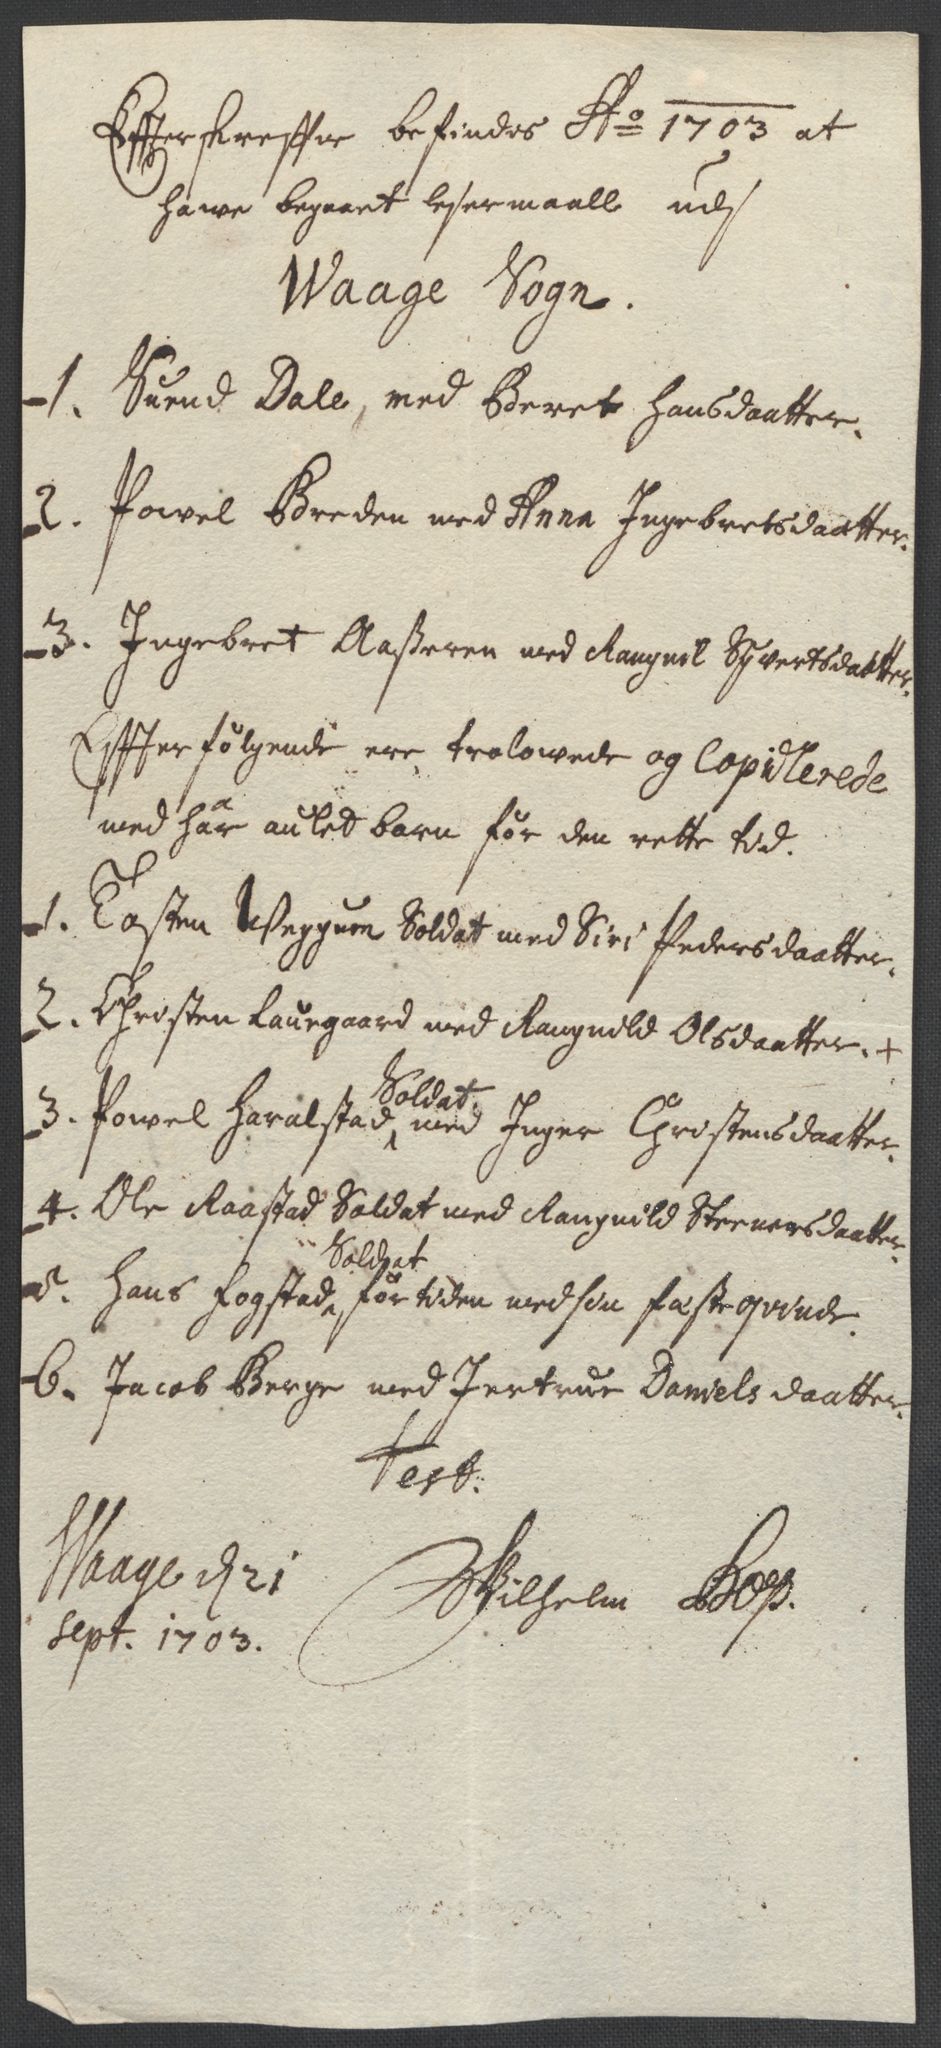 Effterskreffne befindes Ao 1703 at
hawe begaaet lejermaall udj
Waage Sogn.
1. Suend Dale, med Beret Hansdaatter.
2. Powel Breden med Anna Ingebretsdaatter.
3. Ingebret Aaßeren med Rangnil Syvertsdaatter.
Effterfølgende ere trolowede og Copulerede
med har aulet barn før den rette tid.
1. Tosten Weggum Soldat med Siri Pedersdaatter.
2. Christen Lauegaard med Rangnild Olsdaatter. +
3. Powel Haralstad Soldat med Inger Christensdaatter.
4. Ole Raastad Soldat med Rangnild Steenersdaatter.
5. Hans Fogstad Soldat før tiden med sin fæsteqvinde.
6. Jacob Berge med Jertrue Daniels daatter.
Test.
Waage d 21
Sept. 1703.
Wilhelm Bop.